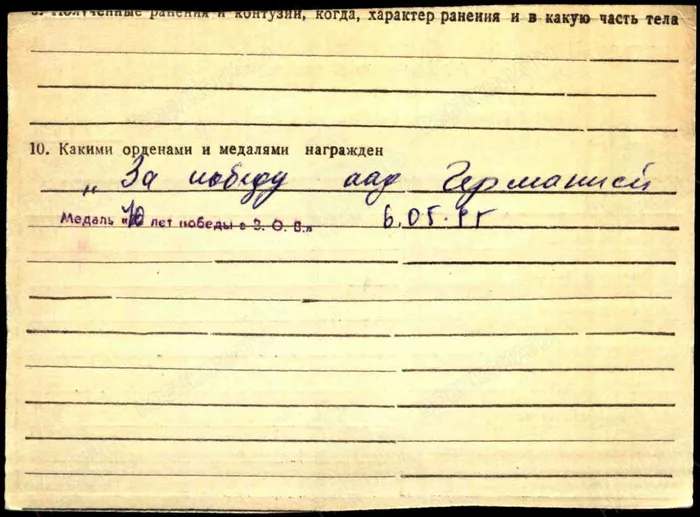 9. Полученные ранения и контузии, когда, характер ранения и в какую часть тела
10. Какими орденами и медалями награжден
„ За победу над Германией
Медаль «40 лет победы в В. О. В.» 6.05.